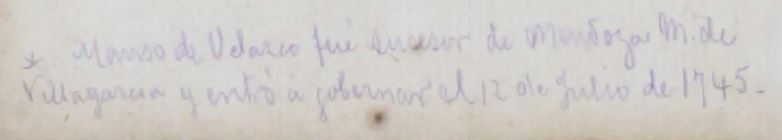 * Manso de Velasco fué sucesor de Mendoza M. de
Villagarcia y entró á gobernar el 12 de Julio de 1745.-